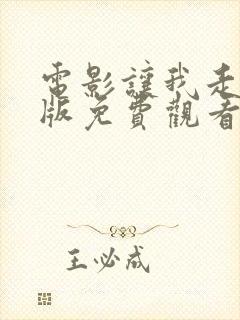 電影讓我走
版免費觀看
王必成